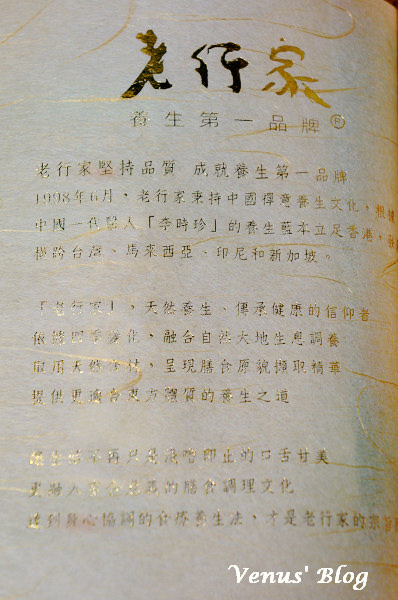 老行家
養生第一品牌®
老行家堅持品質 成就養生第一品牌
1998年6月，老行家秉持中國禪意養生文化，根據
中國一代醫人「李時珍」的養生藍本立足香港，
橫跨台灣、馬來西亞、印尼和新加坡。
「老行家」，天然養生、傳承健康的信仰者
依據四季變化，融合自然大地生息調養
取用天然食材，呈現膳食原貌擷取精華
提供更適合東方體質的養生之道
養生品不再只是淺嚐即止的口舌甘美
更融入 的膳食調理文化
達到身心協調的食療養生法，才是老行家的宗旨
Venus' Blog